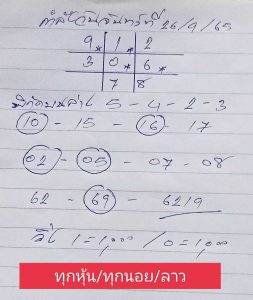 วันจันทร์ที่ 26/9/65
9 * 1 * 2
3 0 * 6 *
7 8
5 - 4 - 2 - 3
10 - 15 - 16 - 17
02 - 05 - 07 - 08
62 - 69 - 6219
วิ่ง 1 = 1,000 / 0 = 1,000
ทุกหุ้น/ทุกนอย/ลาว